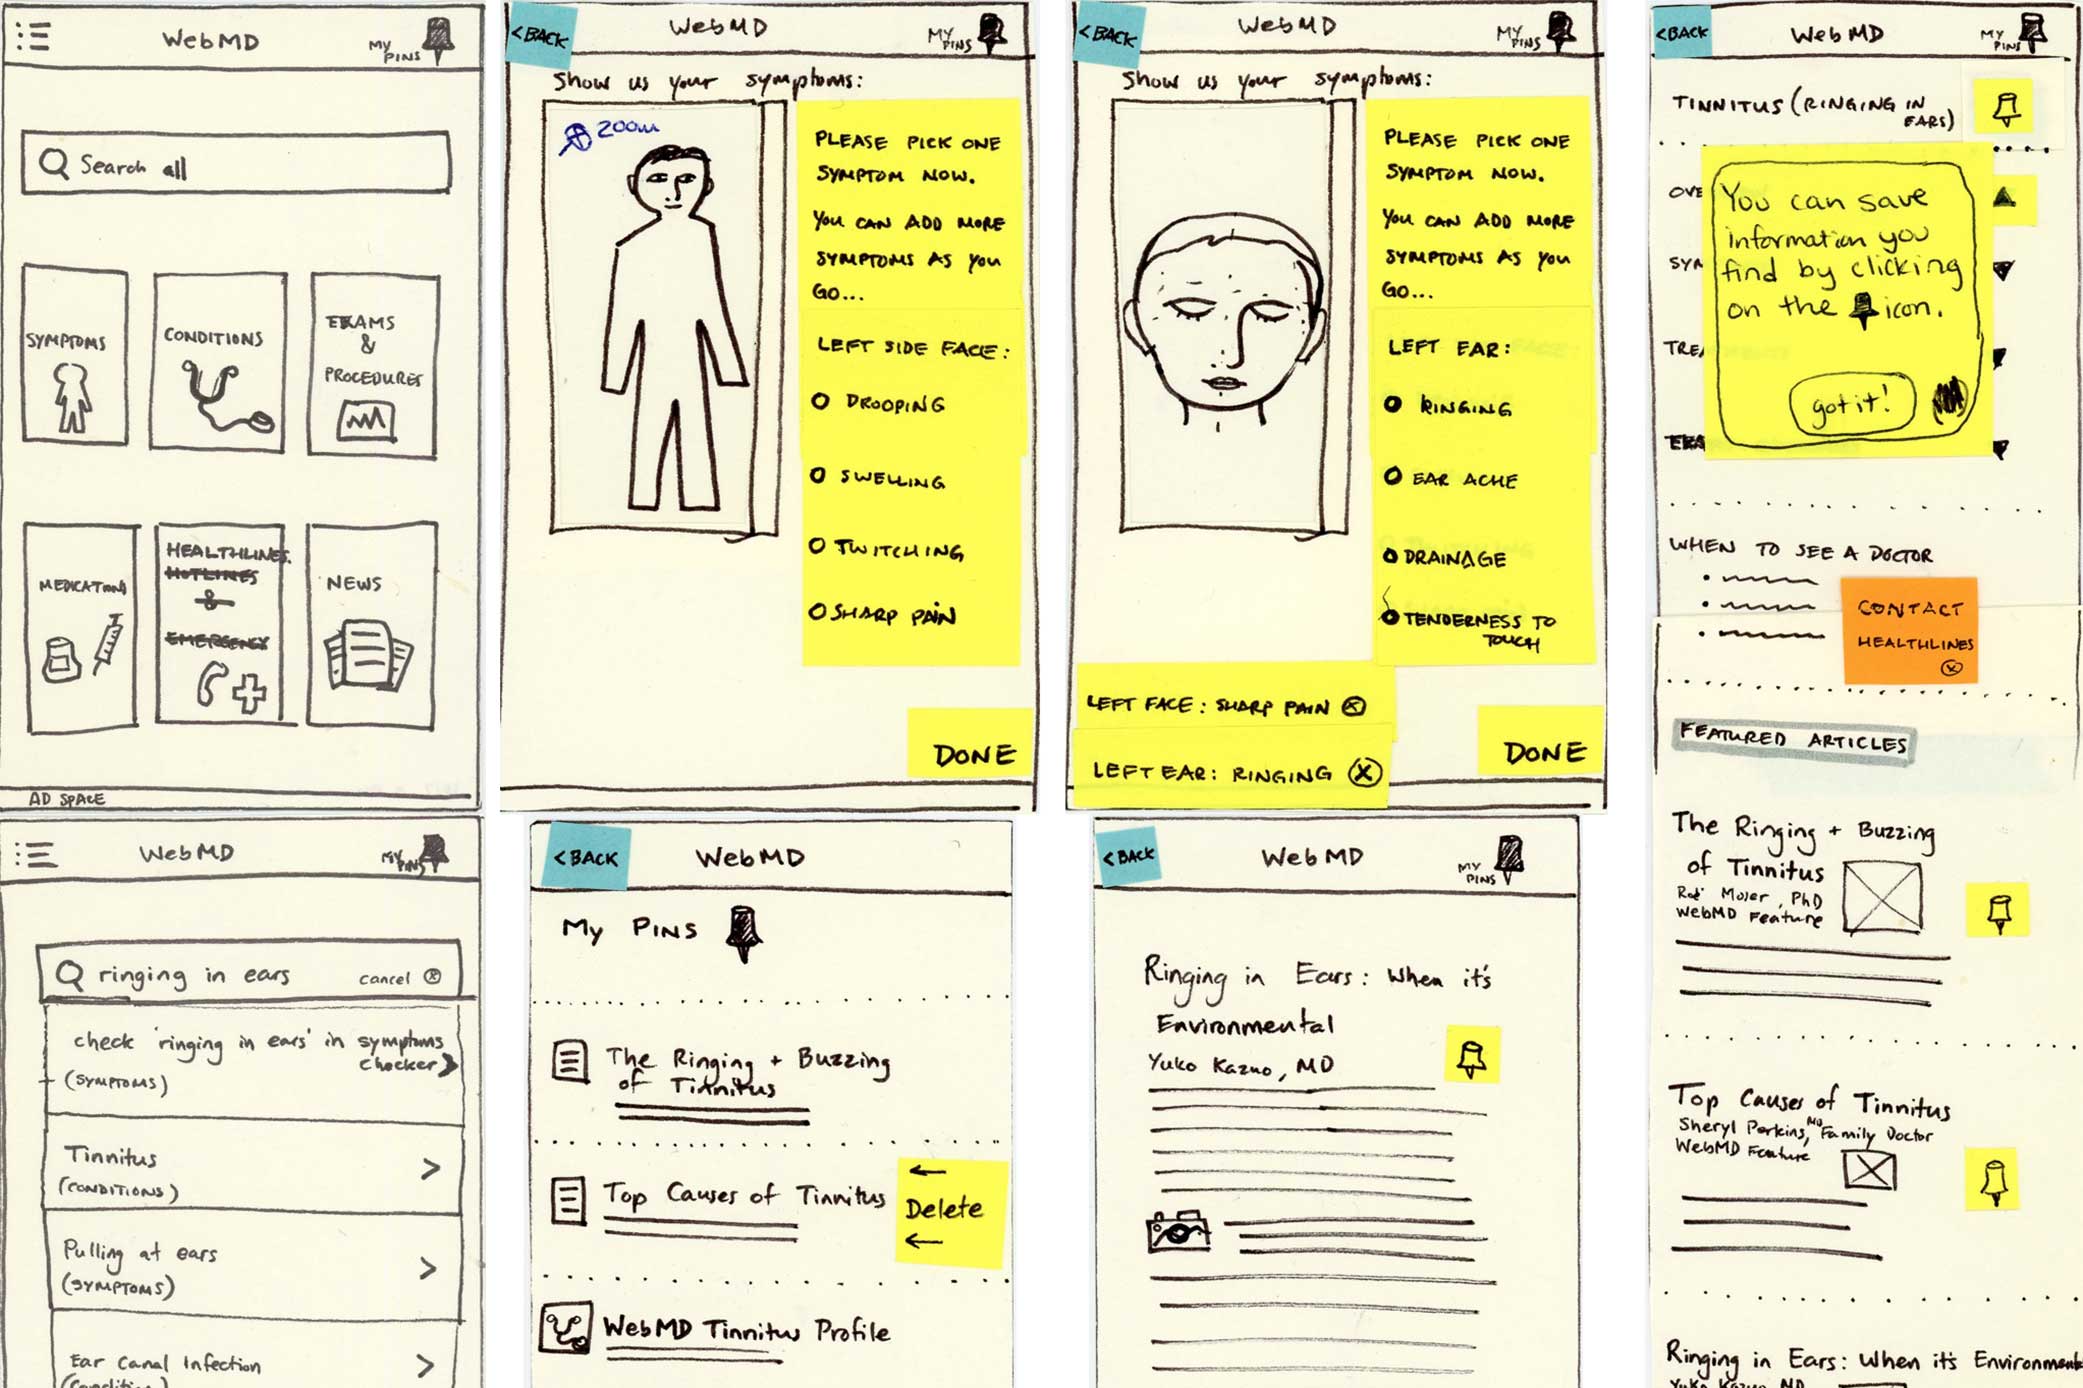 WebMD
MY PINS
Search all
SYMPTOMS
CONDITIONS
EXAMS
&
PROCEDURES
MEDICATIONS
HEALTHLINES.
HOTLINES
&
EMERGENCY
NEWS
AD SPACE
<BACK
WebMD
MY PINS
Show us your symptoms:
zoom
PLEASE PICK ONE
SYMPTOM NOW.
YOU CAN ADD MORE
SYMPTOMS AS YOU
GO...
LEFT SIDE FACE:
DROOPING
SWELLING
TWITCHING
SHARP PAIN
DONE
<BACK
WebMD
MY PINS
Show us your symptoms:
PLEASE PICK ONE
SYMPTOM NOW.
YOU CAN ADD MORE
SYMPTOMS AS YOU
GO...
LEFT EAR:
RINGING
EAR ACHE
DRAINAGE
TENDERNESS TO
TOUCH
LEFT FACE: SHARP PAIN
LEFT EAR: RINGING
DONE
<BACK
WebMD
MY PINS
TINNITUS (RINGING IN
EARS)
OVE
SYM
TREA
EXA
You can save
information you
find by clicking
on the icon.
got it!
WHEN TO SEE A DOCTOR
CONTACT
HEALTHLINES
FEATURED ARTICLES
The Ringing + Buzzing
of Tinnitus
Moser, PhD
WebMD Feature
Top Causes of Tinnitus
Sheryl Perkins, MD Family Doctor
WebMD Feature
Ringing in Ears: When it's Environmental
Yuko Kazuo, MD
WebMD
MY PINS
ringing in ears
cancel
check 'ringing in ears' in symptoms
checker
(SYMPTOMS)
Tinnitus
(CONDITIONS)
Pulling at ears
(SYMPTOMS)
Ear Canal Infection
(Condition)
<BACK
WebMD
My PINS
The Ringing + Buzzing
of Tinnitus
Top Causes of Tinnitus
Delete
WebMD Tinnitus Profile
<BACK
WebMD
MY PINS
Ringing in Ears: When it's
Environmental
Yuko Kazuo, MD